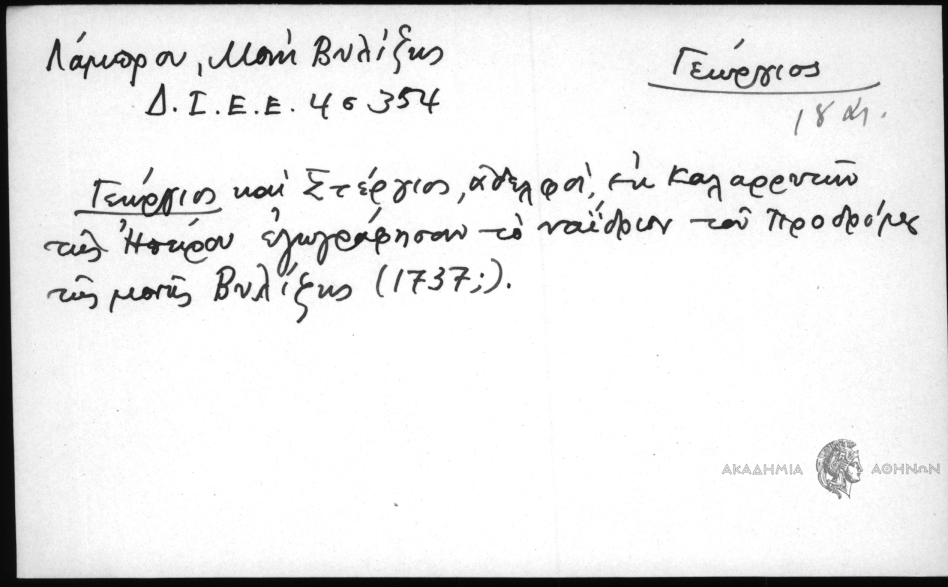 Λάμπρου, Μονή Βυλίζης
Γεώργιος
Δ. Ι. Ε. Ε. 4 σ 354
18 αι.
Γεώργιος καὶ Στέργιος, ἀδελφοί, ἐκ Καλαρρυτῶν
τῆς Ἠπείρου ἐζωγράφησαν τὸ ναΐδριον τοῦ Προδρόμου
τῆς μονῆς Βυλίζης (1737;).
ΑΚΑΔΗΜΙΑ ΑΘΗΝΩΝ